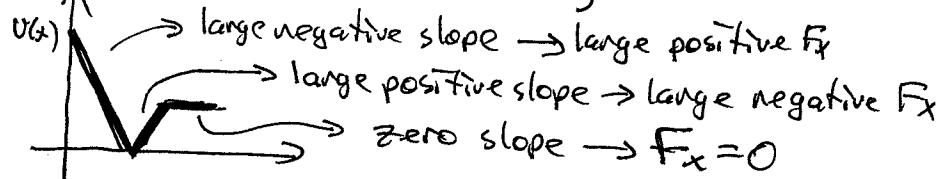 U(x) large negative slope → large positive Fx
large positive slope → large negative Fx
zero slope → Fx = 0